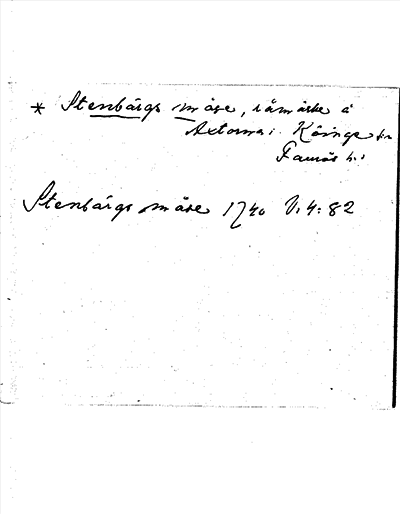 * Stenbärgs måse, råmärke å
Axtorna i Köinge sn
Faurås h.:
Stenbärgs måse 1740 V. 4: 82